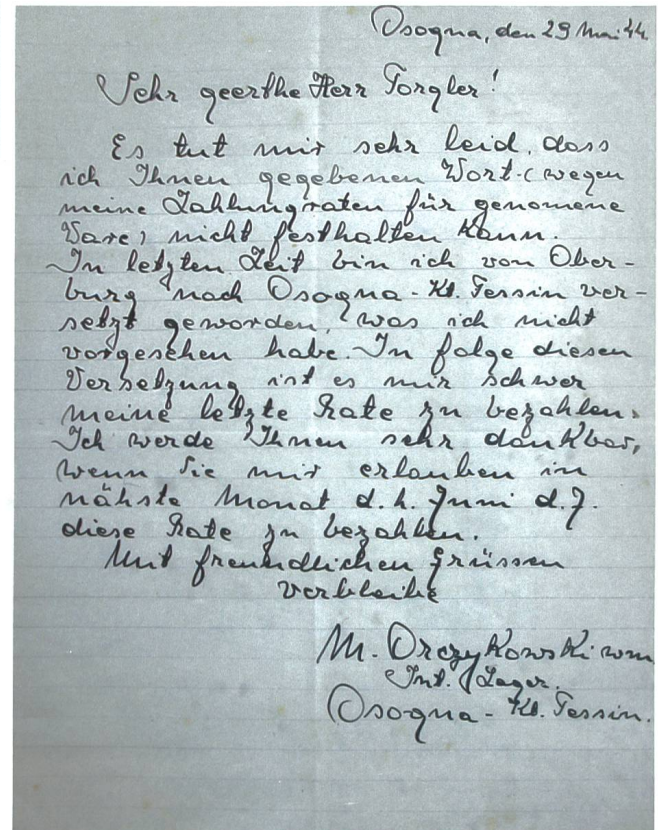 Osogna, den 29 Mai 44
Sehr geerthe Herr Torgler!
Es tut mir sehr leid, dass
ich Ihnen gegebenen Wort (wegen
meine Zahlungraten für genomene
Ware) nicht festhalten kann.
In letzten Zeit bin ich von Ober-
burg nach Osogna - Kt. Tessin ver-
setzt geworden, was ich nicht
vorgesehen habe. In folge diesen
Versetzung ist es mir schwer
meine letzte Rate zu bezahlen.
Ich werde Ihnen sehr dankbar,
wenn Sie mir erlauben in
nähste Monat d. h. Juni d. J.
diese Rate zu bezahlen.
Mit freundlichen Grüssen
verbleibe
M. Orczykowski
Int. Lager.
Osogna - Kt. Tessin.